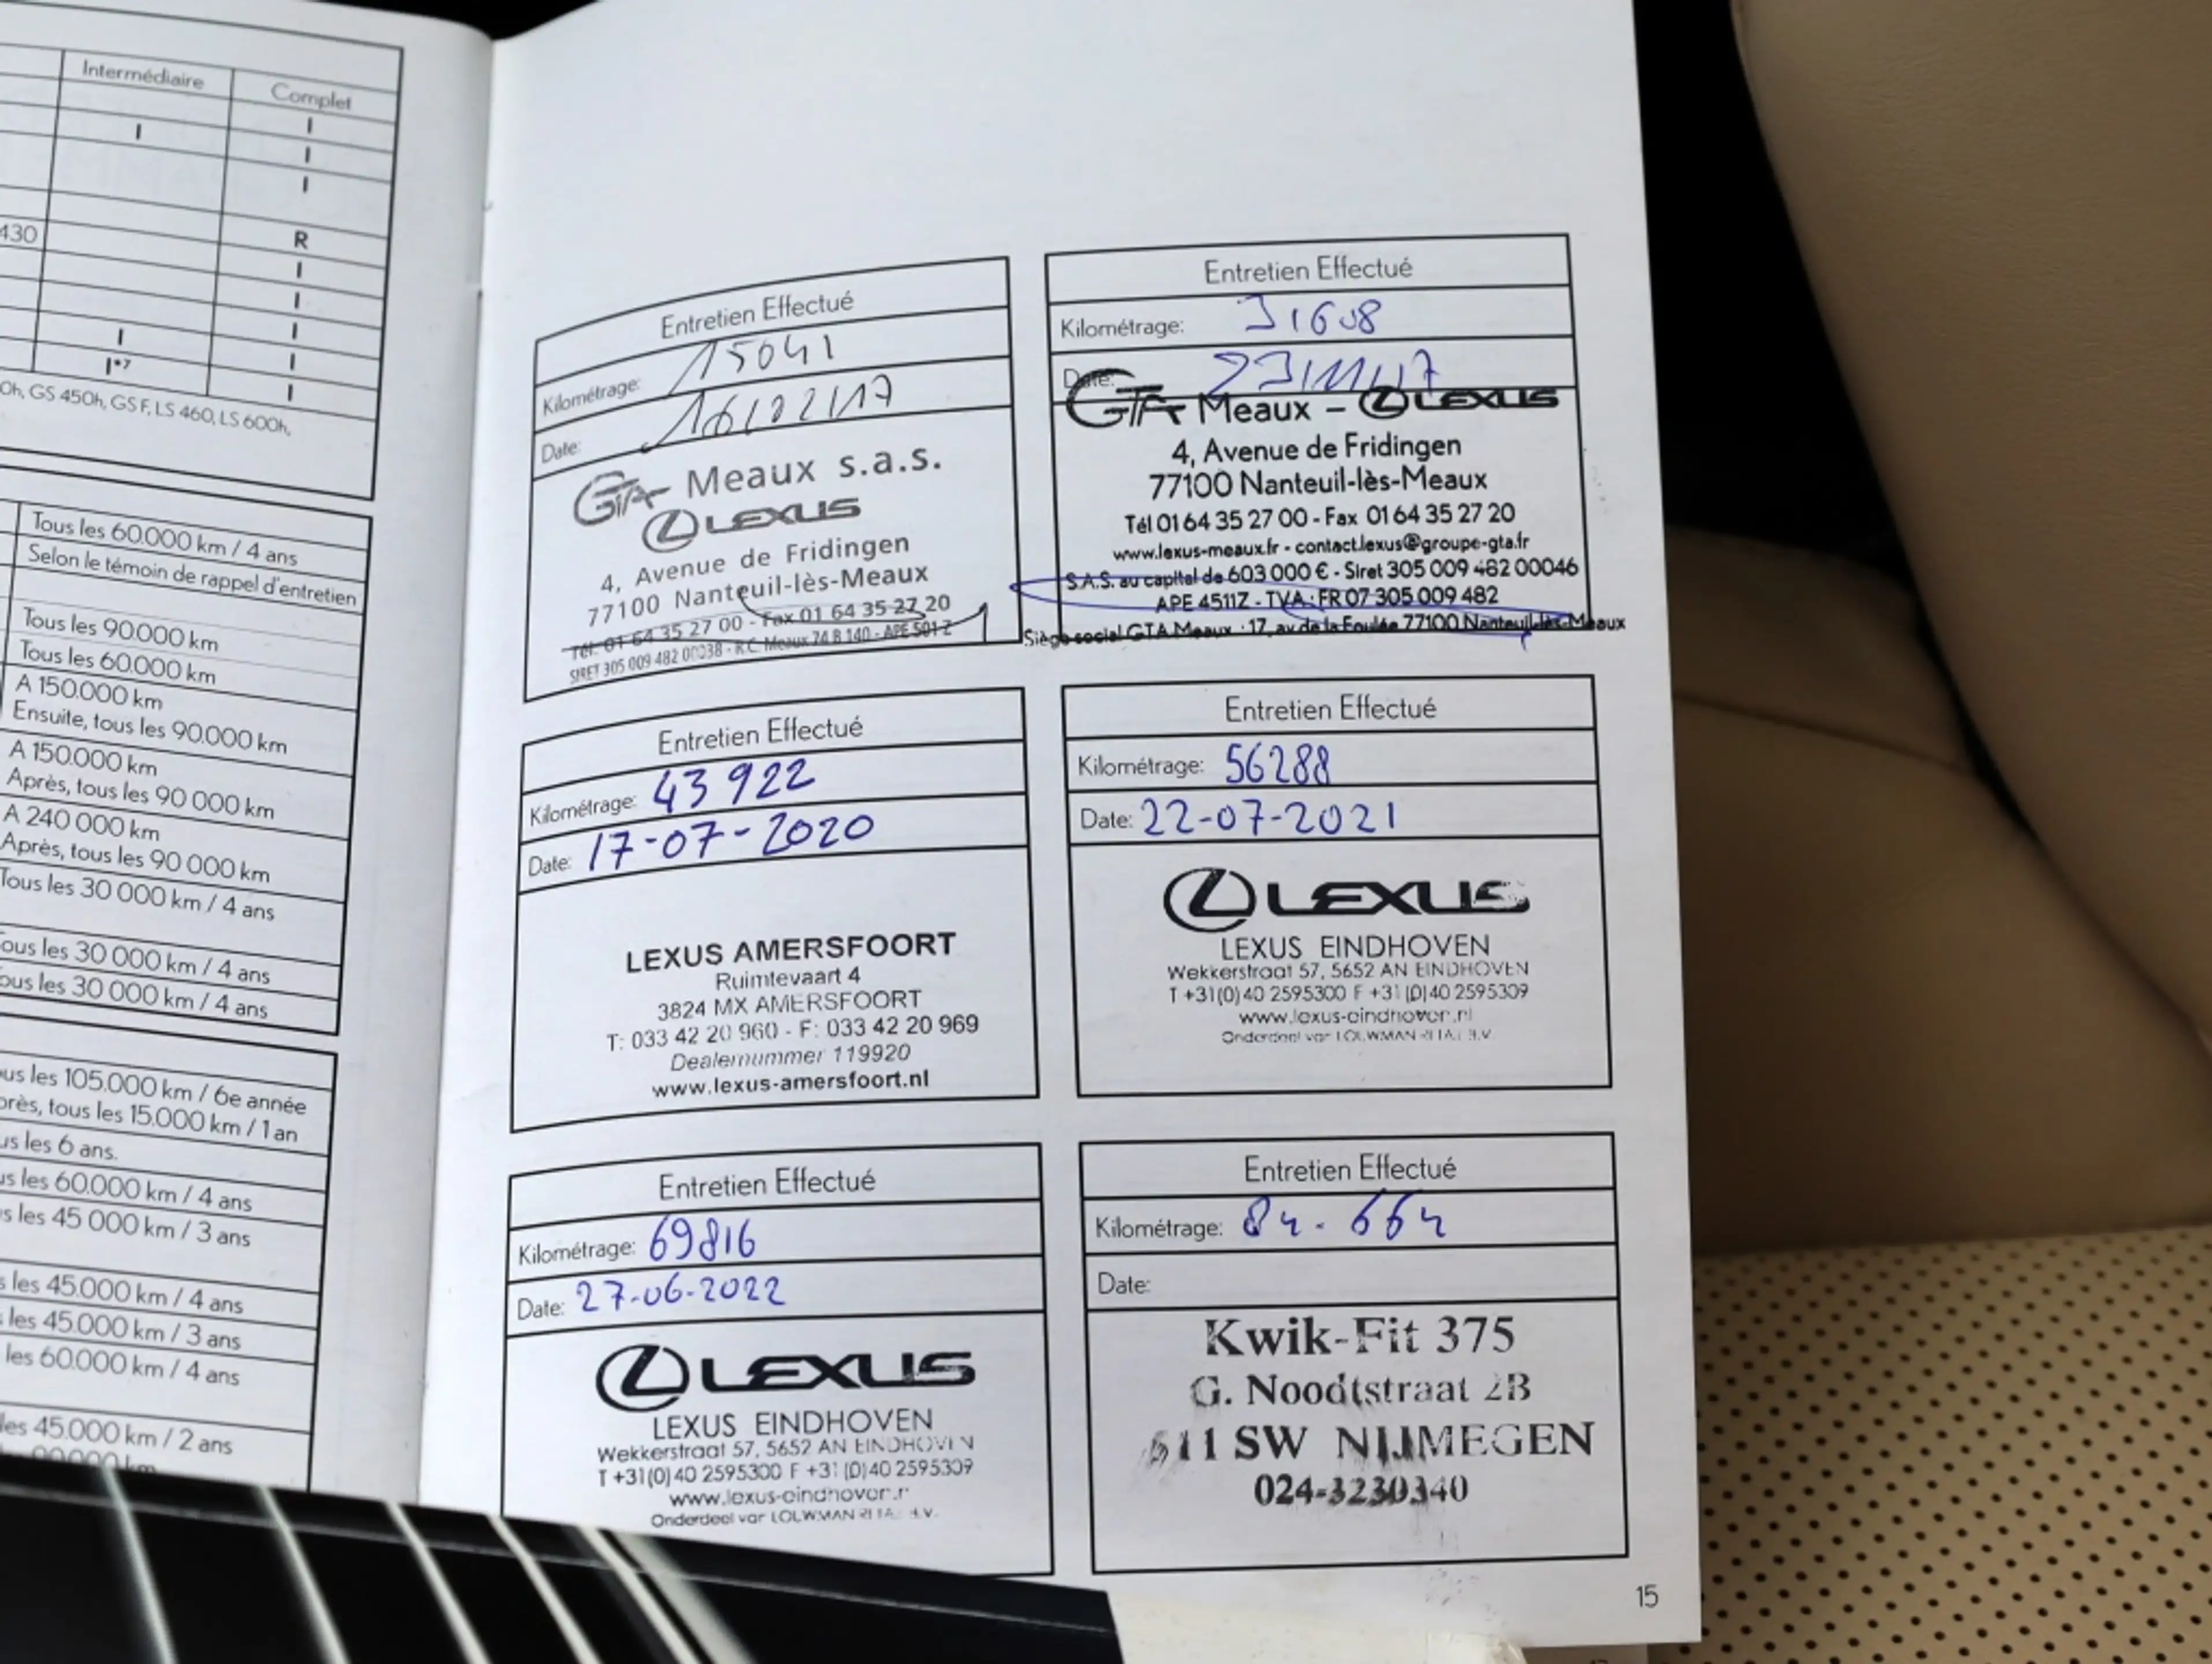 Intermédiaire Complet
I
I I
I
430 R
I
I
I I
I*7 I
I
0h, GS 450h, GS F, LS 460, LS 600h,
Tous les 60.000 km / 4 ans
Selon le témoin de rappel d'entretien
Tous les 90.000 km
Tous les 60.000 km
A 150.000 km
Ensuite, tous les 90.000 km
A 150.000 km
Après, tous les 90 000 km
A 240 000 km
Après, tous les 90 000 km
Tous les 30 000 km / 4 ans
ous les 30 000 km / 4 ans
ous les 30 000 km / 4 ans
ous les 105.000 km / 6e année
près, tous les 15.000 km / 1 an
us les 6 ans.
us les 60.000 km / 4 ans
s les 45 000 km / 3 ans
s les 45.000 km / 4 ans
les 45.000 km / 3 ans
les 60.000 km / 4 ans
les 45.000 km / 2 ans
Entretien Effectué
Kilométrage: 15041
Date: 16/02/17
GTA Meaux s.a.s.
LEXUS
4, Avenue de Fridingen
77100 Nanteuil-lès-Meaux
Tél. 01 64 35 27 00 - Fax 01 64 35 27 20
SIRET 305 009 482 00038 - R.C. Meaux 74 B 140 - APE 501 Z
Entretien Effectué
Kilométrage: 31608
Date: 23/11/17
GTA Meaux – LEXUS
4, Avenue de Fridingen
77100 Nanteuil-lès-Meaux
Tél 01 64 35 27 00 - Fax 01 64 35 27 20
www.lexus-meaux.fr - contact.lexus@groupe-gta.fr
S.A.S. au capital de 603 000 € - Siret 305 009 482 00046
APE 4511Z - TVA : FR 07 305 009 482
Siège social GTA Meaux : 17, av de la Foulée 77100 Nanteuil-lès-Meaux
Entretien Effectué
Kilométrage: 43 922
Date: 17-07-2020
LEXUS AMERSFOORT
Ruimtevaart 4
3824 MX AMERSFOORT
T: 033 42 20 960 - F: 033 42 20 969
Dealernummer 119920
www.lexus-amersfoort.nl
Entretien Effectué
Kilométrage: 56288
Date: 22-07-2021
LEXUS
LEXUS EINDHOVEN
Wekkerstraat 57, 5652 AN EINDHOVEN
T +31(0)40 2595300 F +31(0)40 2595309
www.lexus-eindhoven.nl
Onderdeel van LOUWMAN RETAIL B.V.
Entretien Effectué
Kilométrage: 69816
Date: 27-06-2022
LEXUS
LEXUS EINDHOVEN
Wekkerstraat 57, 5652 AN EINDHOVEN
T +31(0)40 2595300 F +31(0)40 2595309
www.lexus-eindhoven.n
Onderdeel van LOUWMAN RETAIL B.V.
Entretien Effectué
Kilométrage: 84.664
Date:
Kwik-Fit 375
G. Noodtstraat 2B
511 SW NIJMEGEN
024-3230340
15